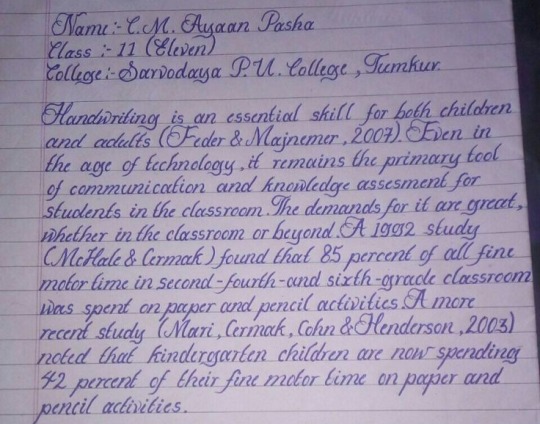 Name:- C.M. Ayaan Pasha
Class :- 11 (Eleven)
College:- Sarvodaya P.U. College , Tumkur.
Handwriting is an essential skill for both children
and adults (Feder & Majnemer, 2007). Even in
the age of technology, it remains the primary tool
of communication and knowledge assesment for
students in the classroom. The demands for it are great,
whether in the classroom or beyond. A 1992 study
(McHale & Cermak) found that 85 percent of all fine
motor time in second-fourth-and sixth-grade classroom
was spent on paper and pencil activities. A more
recent study (Mari, Cermak, Cohn & Henderson, 2003)
noted that kindergarten children are now spending
42 percent of their fine motor time on paper and
pencil activities.